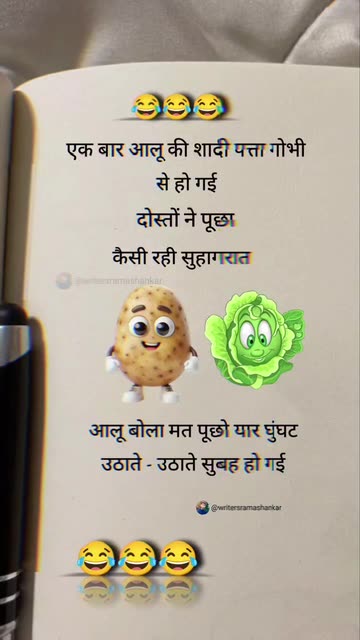 एक बार आलू की शादी पत्ता गोभी
से हो गई
दोस्तों ने पूछा
कैसी रही सुहागरात
@writersramashankar
आलू बोला मत पूछो यार घुंघट
उठाते - उठाते सुबह हो गई
@writersramashankar